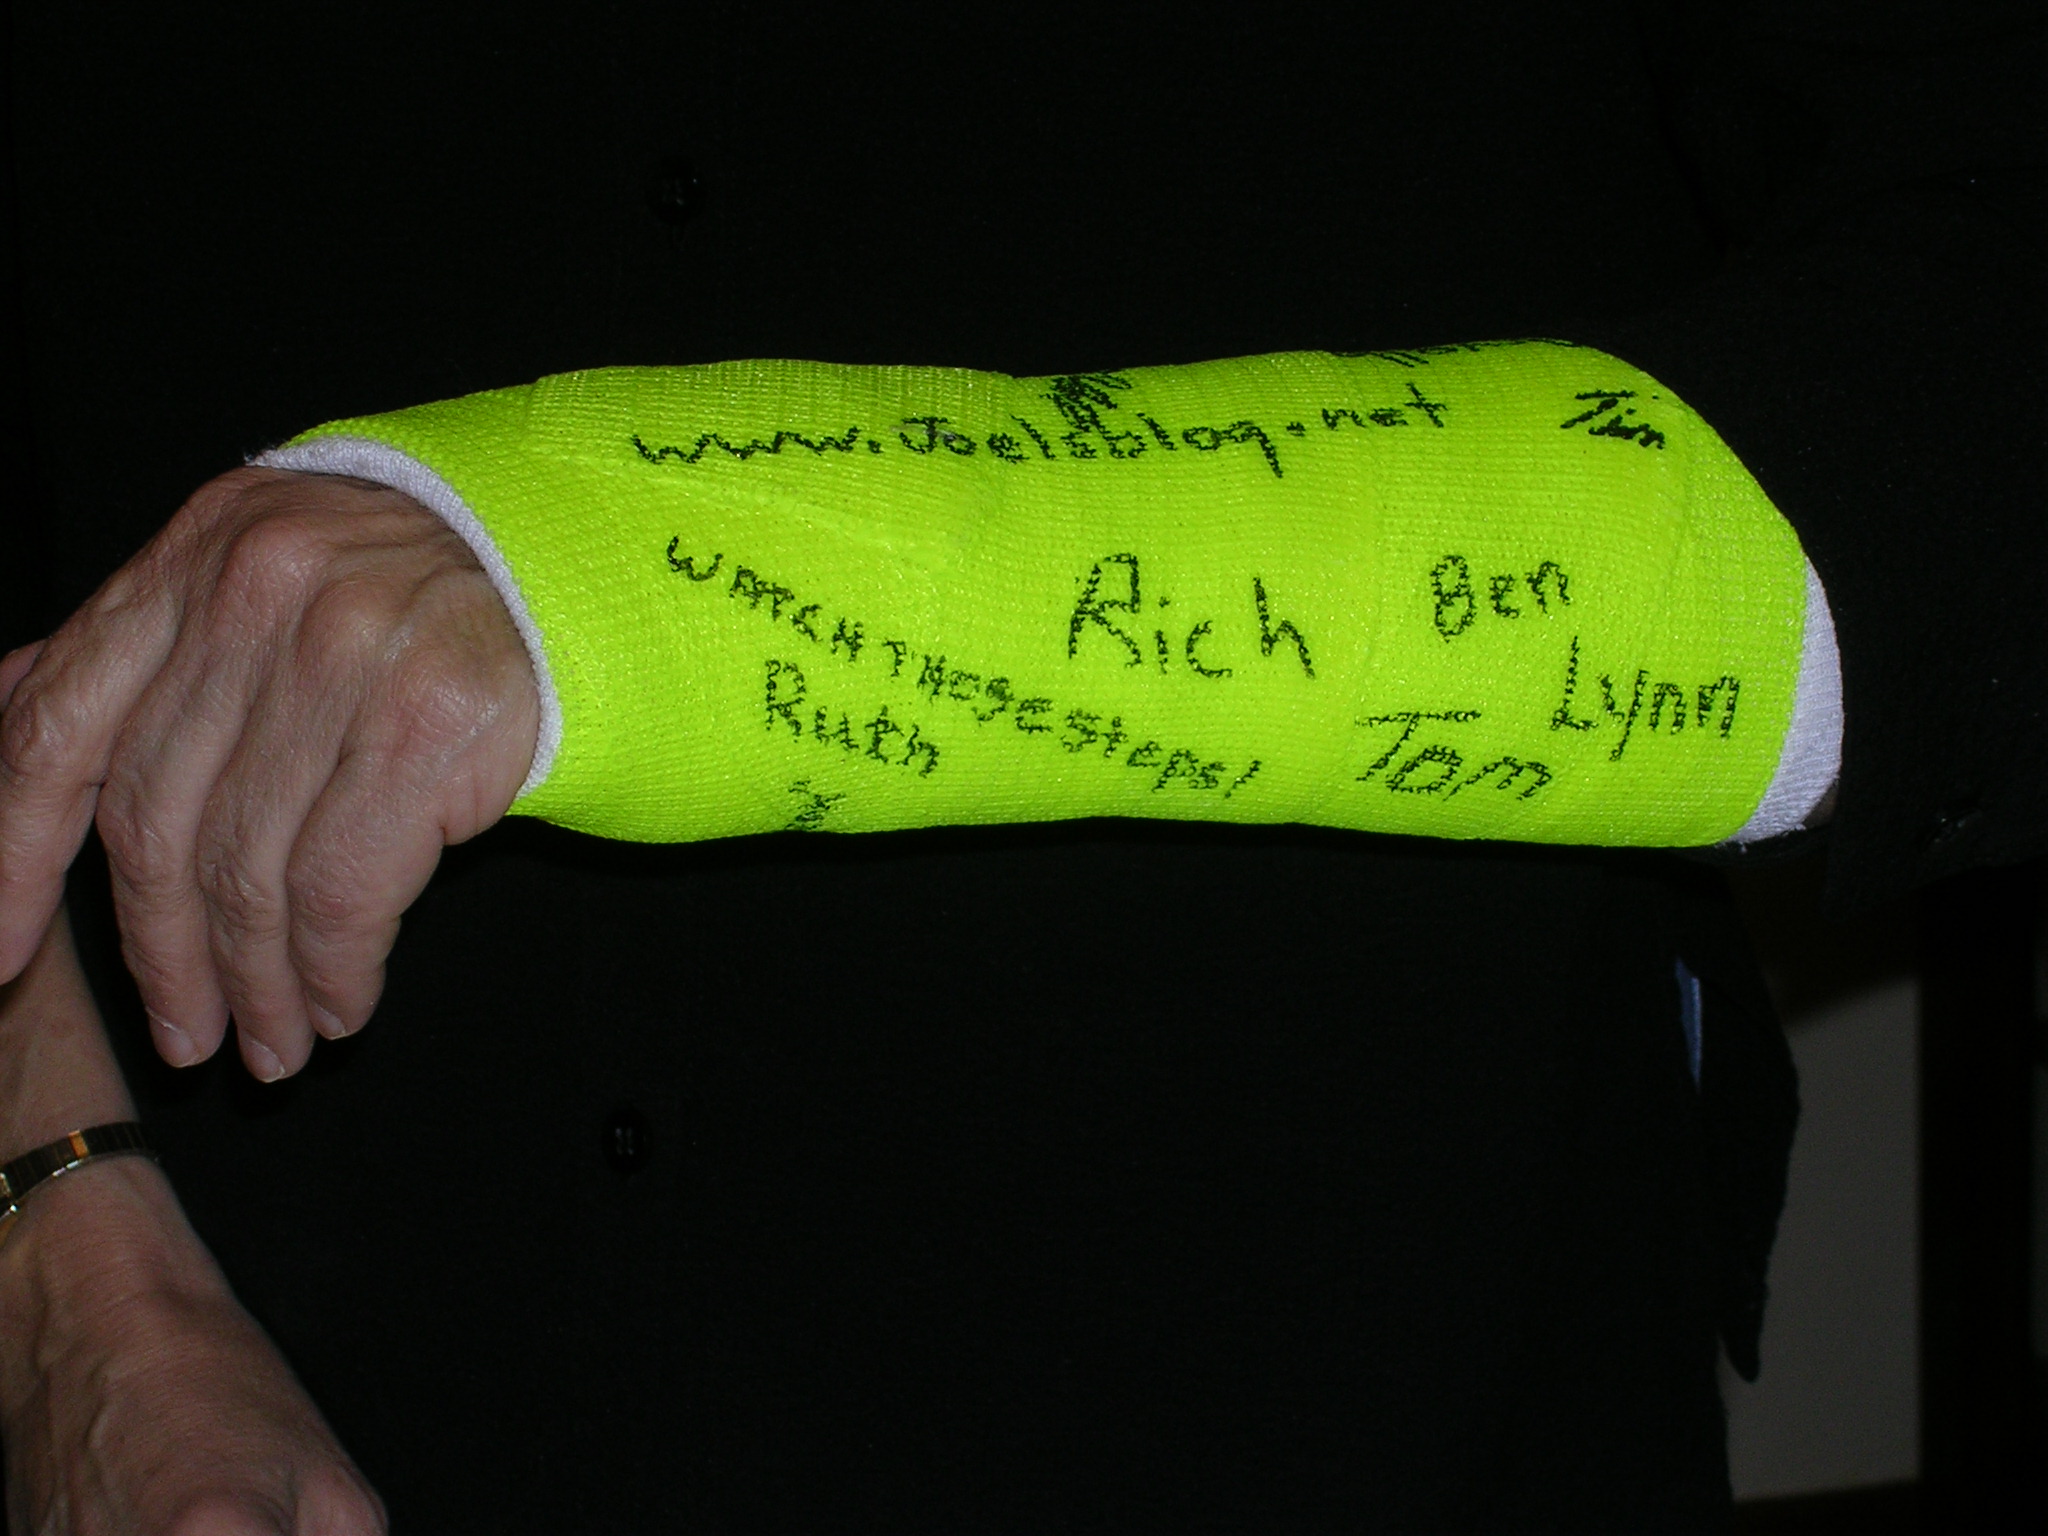 www.Joelsblog.net
Tim
WATCH THOSE Steps!
Rich
Ben
Ruth
Tom
Lynn